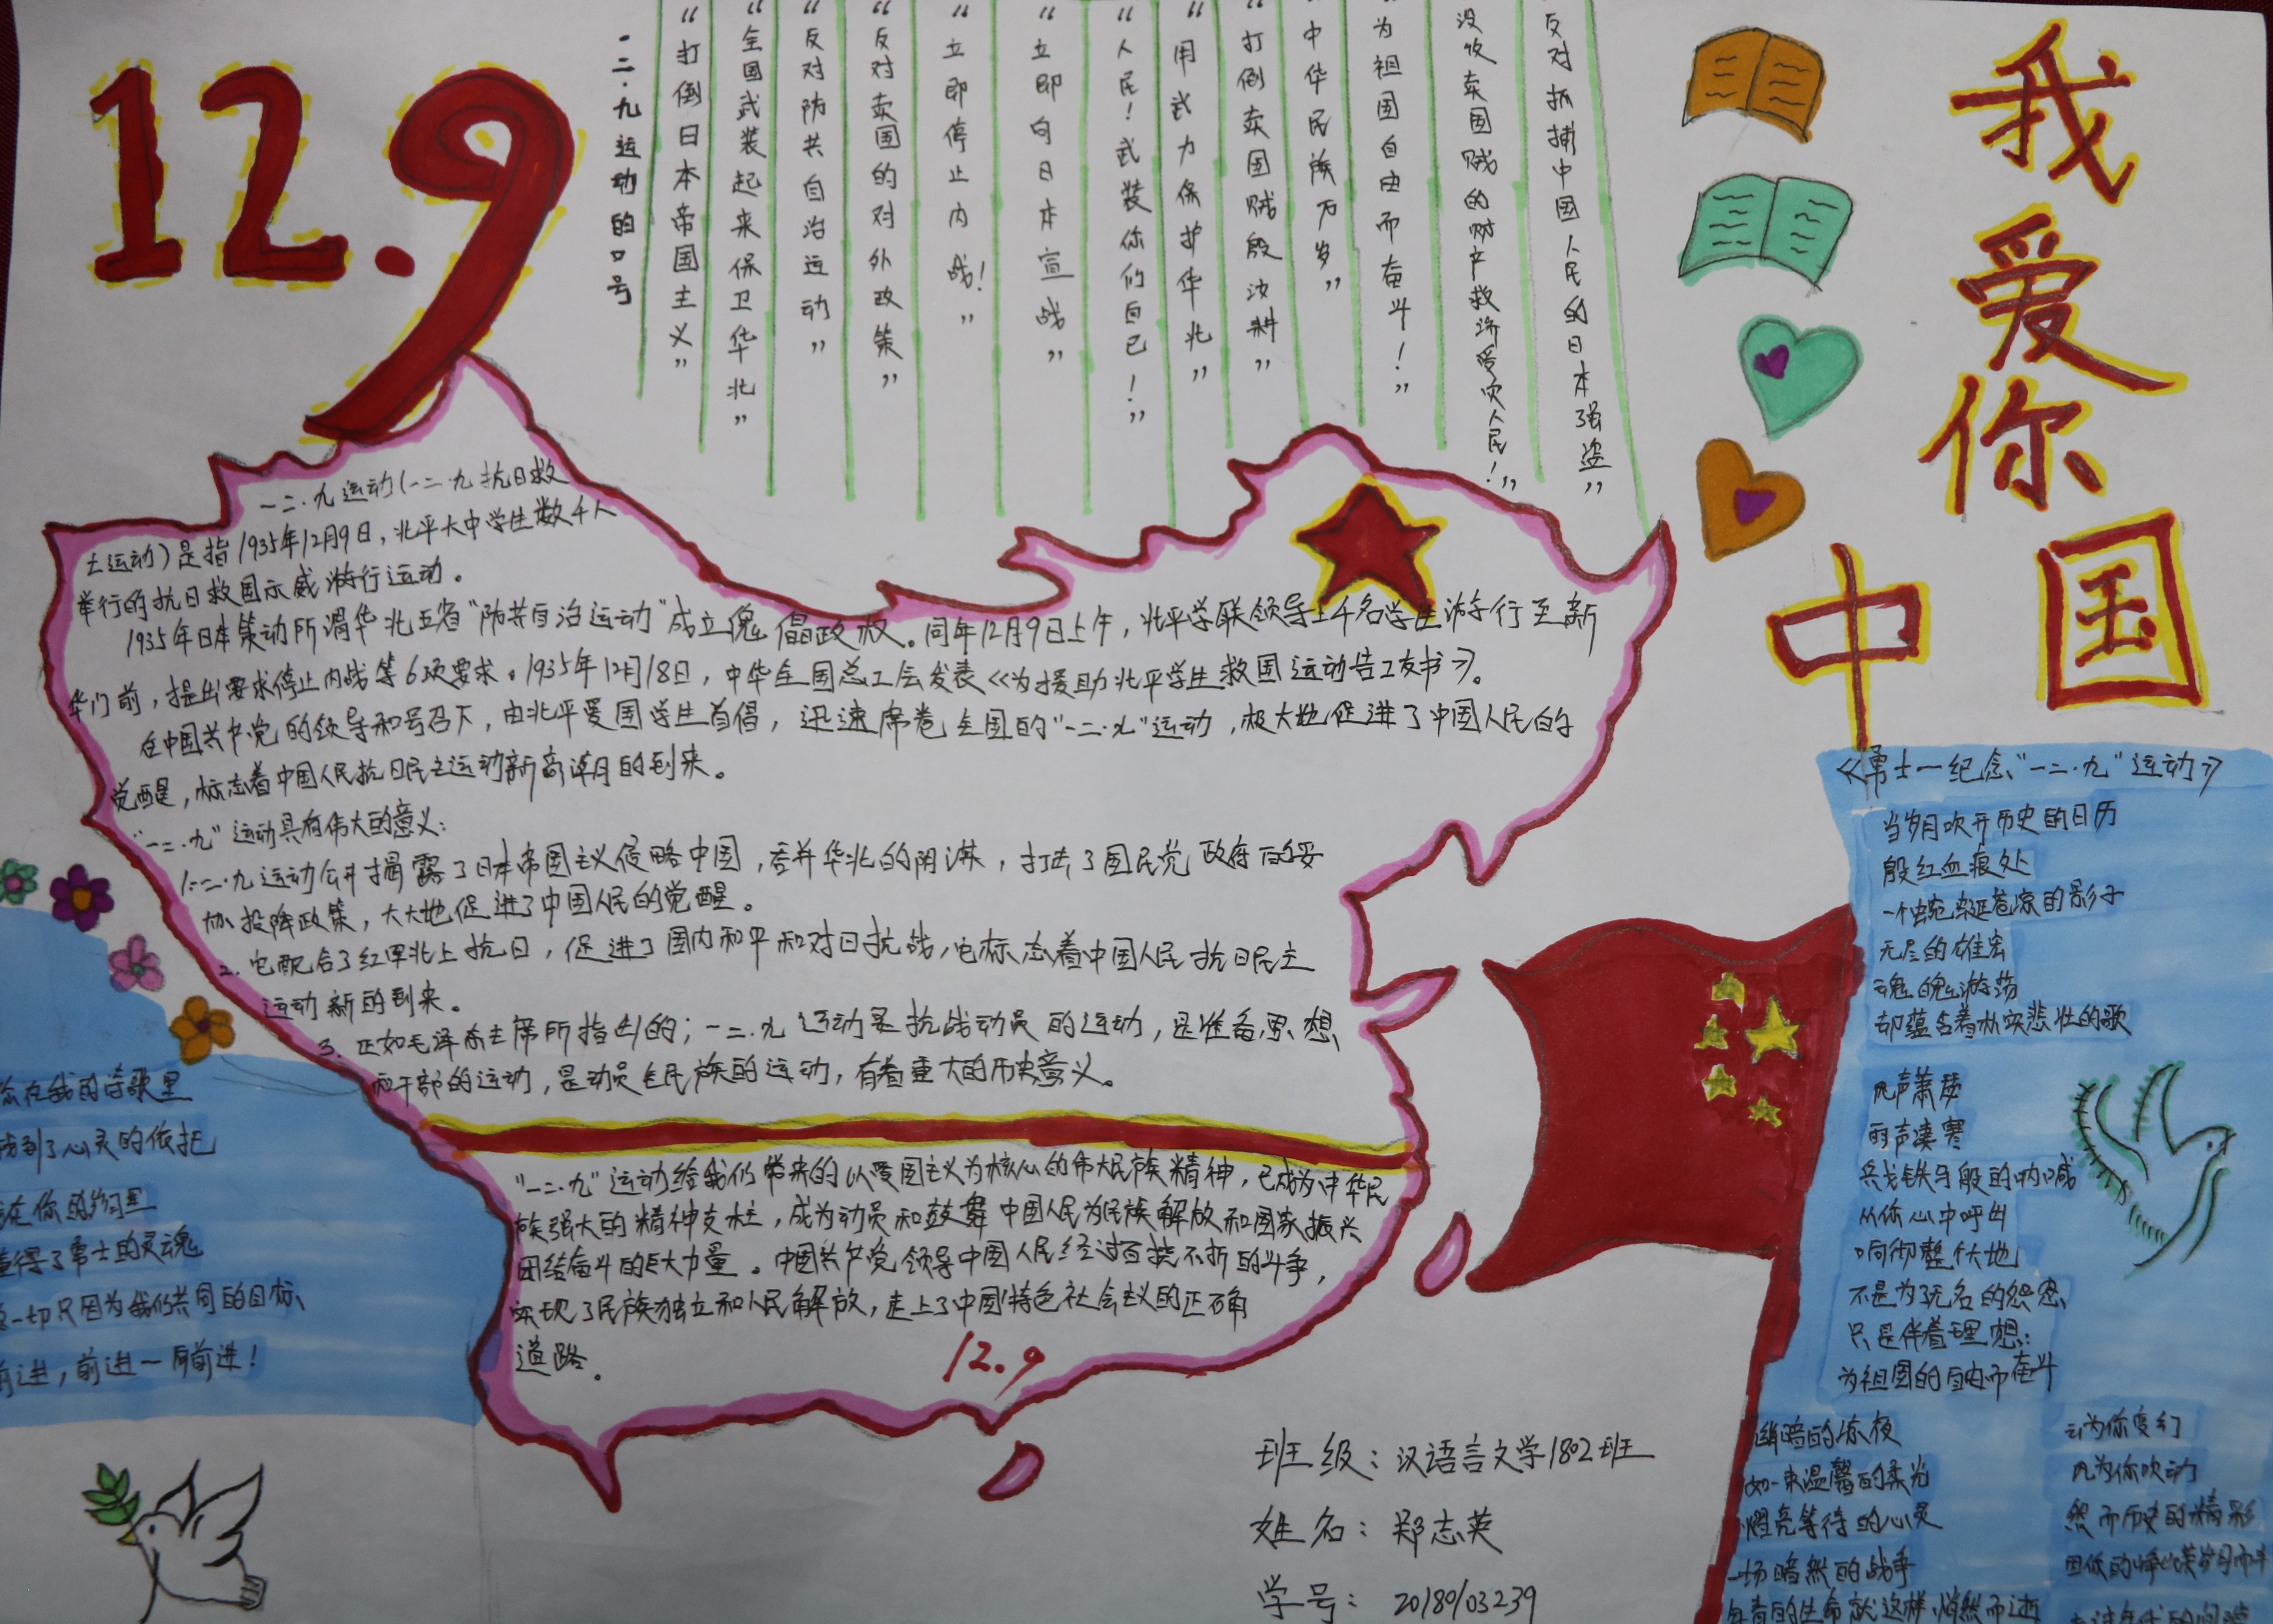 12.9
一二·九运动的口号
“打倒日本帝国主义”
“全国武装起来保卫华北”
“反对防共自治运动”
“反对卖国的对外政策”
“立即停止内战！”
“立即向日本宣战”
“人民！武装你们自己！”
“用武力保护华北”
“打倒卖国贼殷汝耕”
中华民族万岁”
为祖国自由而奋斗！”
没收卖国贼的财产救济受灾人民！”
反对抓捕中国人民的日本强盗”
我爱你
中国
一二·九运动(一二·九抗日救
士运动)是指1935年12月9日，北平大中学生数千人
举行的抗日救国示威游行运动。
1935年日本策动所谓华北五省“防共自治运动”成立傀儡政权。同年12月9日上午，北平学联领导上千名学生游行至新
华门前，提出要求停止内战等6项要求。1935年12月18日，中华全国总工会发表《为援助北平学生救国运动告工友书》。
在中国共产党的领导和号召下，由北平爱国学生首倡，迅速席卷全国的“一二·九”运动，极大地促进了中国人民的
觉醒，标志着中国人民抗日民主运动新高潮的到来。
“一二·九”运动具有伟大的意义：
1.一二·九运动公开揭露了日本帝国主义侵略中国，吞并华北的阴谋，打击了国民党政府的妥
协投降政策，大大地促进了中国人民的觉醒。
2.它配合了红军北上抗日，促进了国内和平和对日抗战，它标志着中国人民抗日民主
运动新的到来。
3.正如毛泽东主席所指出的；一二·九运动是抗战动员的运动，是准备思想
和干部的运动，是动员全民族的运动，有着重大的历史意义。
“一二·九”运动给我们带来的以爱国主义为核心的伟大民族精神，已成为中华民
族强大的精神支柱，成为动员和鼓舞中国人民为民族解放和国家振兴
团结奋斗的巨大力量。中国共产党领导中国人民经过百挠不折的斗争，
实现了民族独立和人民解放，走上了中国特色社会主义的正确
道路。
12.9
《勇士一纪念“一二·九”运动》
当岁月吹开历史的日历
殷红血痕处
一个蜿蜒苍凉的影子
无尽的雄宏
魂魄游荡
却蕴含着朴实悲壮的歌
风声萧瑟
雨声凄寒
兵戈铁马般的呐喊
从你心中呼出
响彻整个大地
不是为了无名的怨怒
只是伴着理想：
为祖国的自由而奋斗
幽暗的深夜
如一束温馨的柔光
照亮等待的心灵
一场暗然的战争
年青的生命就这样悄然而逝
云为你变幻
风为你吹动
然而历史的精彩
你在我的诗歌里
找到了心灵的依托
在你的身上
懂得了勇士的灵魂
一切只因为我们共同的目标
前进，前进一向前进！
班级：汉语言文学1802班
姓名：郑志英
学号：20180103239